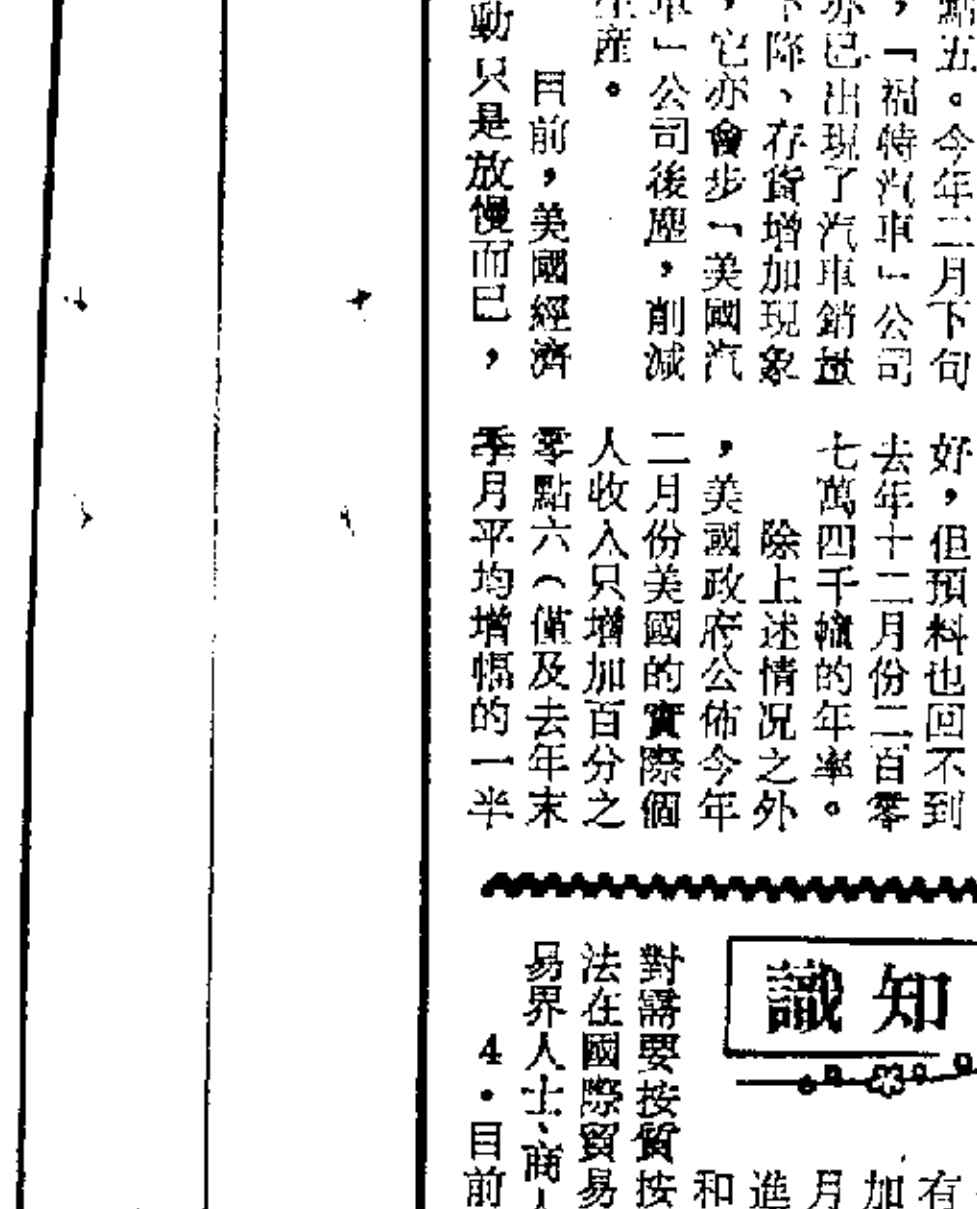 點五。今年二月下旬
，「福特汽車」公司
亦已出現了汽車銷量
下降、存貨增加現象
，它亦會步「美國汽
車」公司後塵，削減
生產。
目前，美國經濟
動只是放慢而已，
好，但預料也回不到
去年十二月份二百零
七萬四千輛的年率。
除上述情况之外
，美國政府公佈今年
二月份美國的實際個
人收入只增加百分之
零點六（僅及去年末
季月平均增幅的一半
知識
有
加
月
進
和
對需要按質按
法在國際貿易
易界人士、商人
4．目前